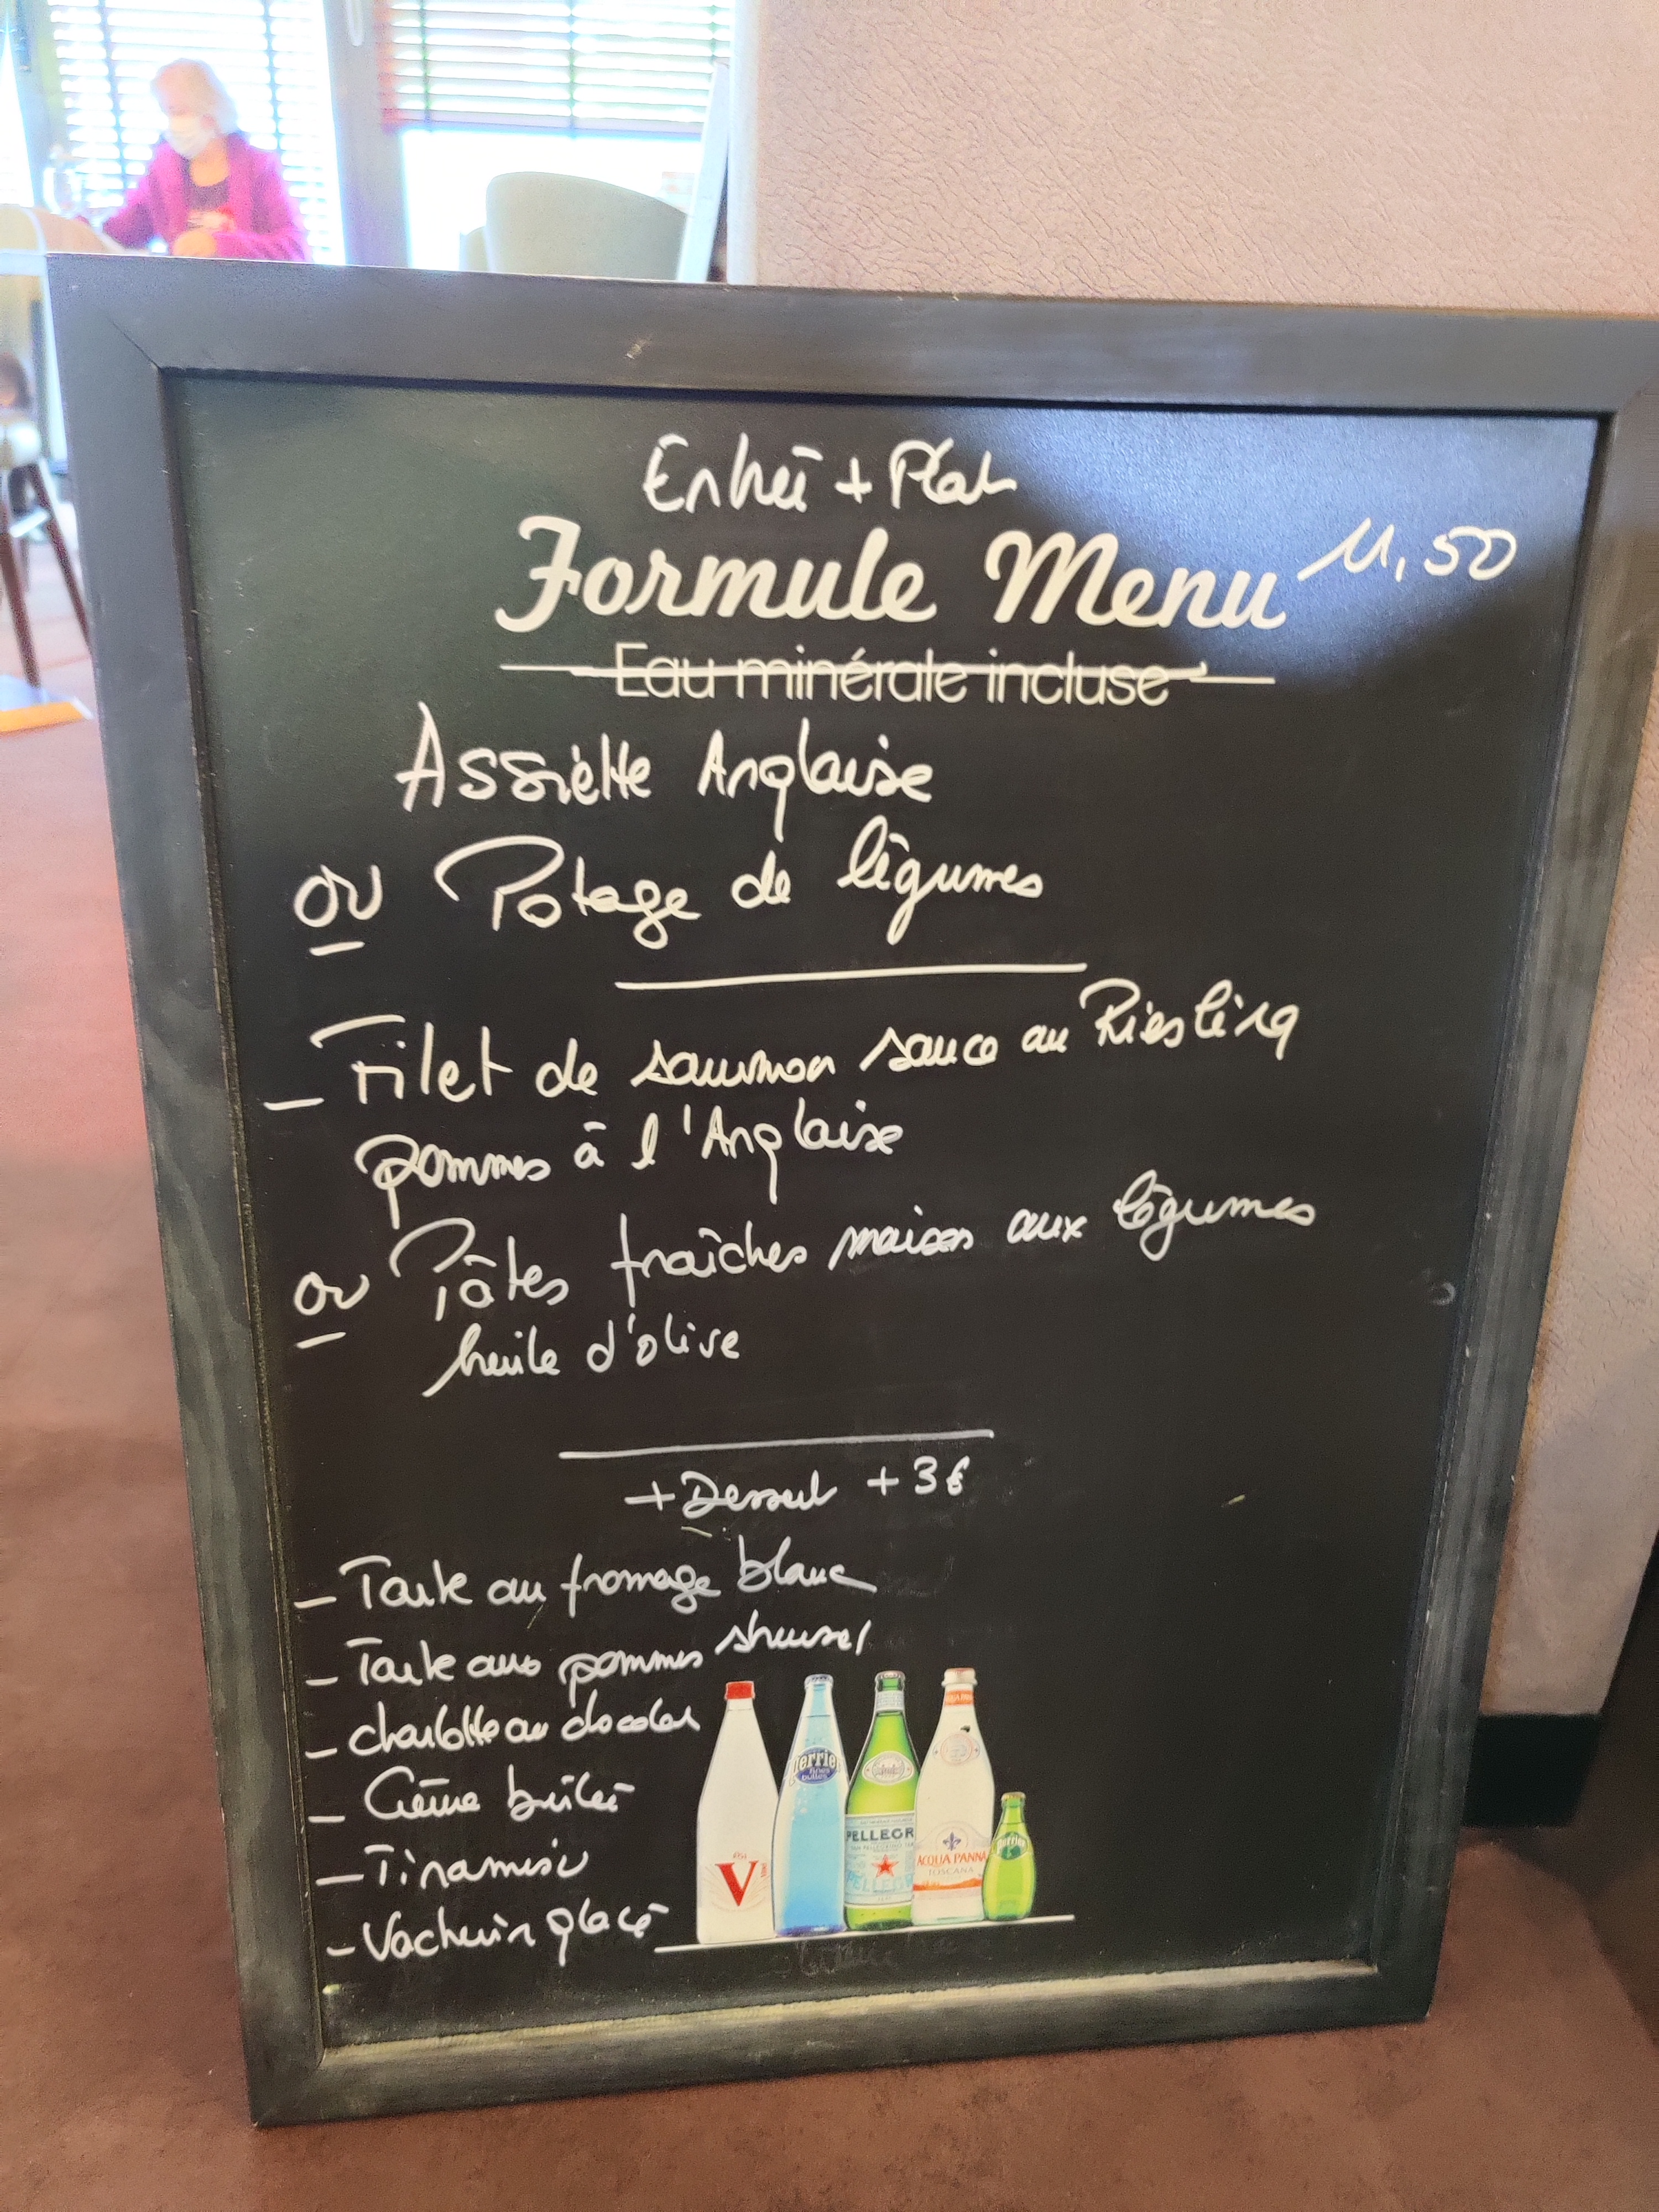 Entrée + Plat
Formule Menu 11,50
Eau minérale incluse
Assiètte Anglaise
ou Potage de légumes
_ Filet de saumon sauce au Riesling
pommes à l'Anglaise
ou Pâtes fraîches maison aux légumes
huile d'olive
+ Dessert + 3€
_ Tarte au fromage blanc
_ Tarte aux pommes streusel
_ charlotte au chocolat
_ Crème brûlée
_ Tiramisu
_ Vacherin glacé
V
Perrier
fines bulles
PELLEGR
ACQUA PANNA
TOSCANA
Perrier